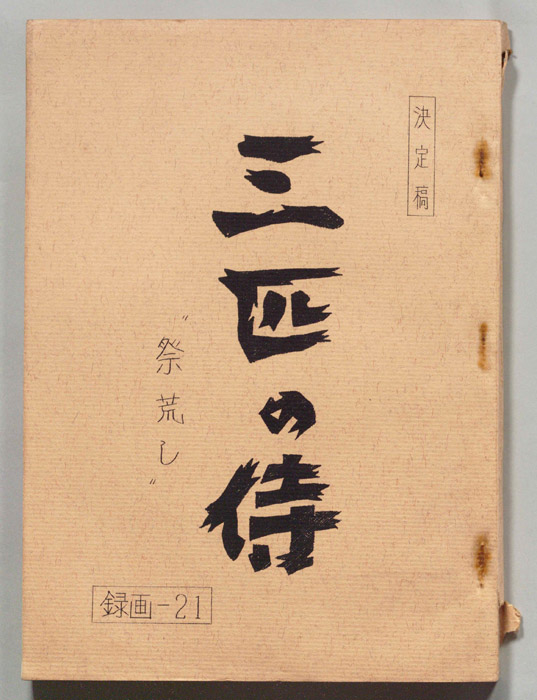 決定稿
三匹の侍
〝祭荒し〟
録画-21